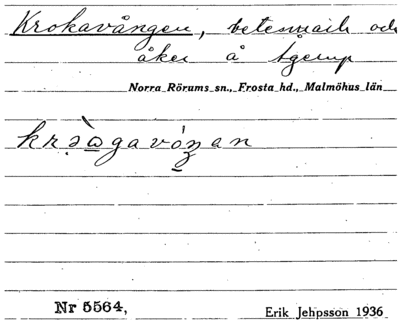 Krokavången, betesmark och
åker å Ageryp
Norra Rörums sn., Frosta hd., Malmöhus län
Nr 5564,
Erik Jehpsson 1936